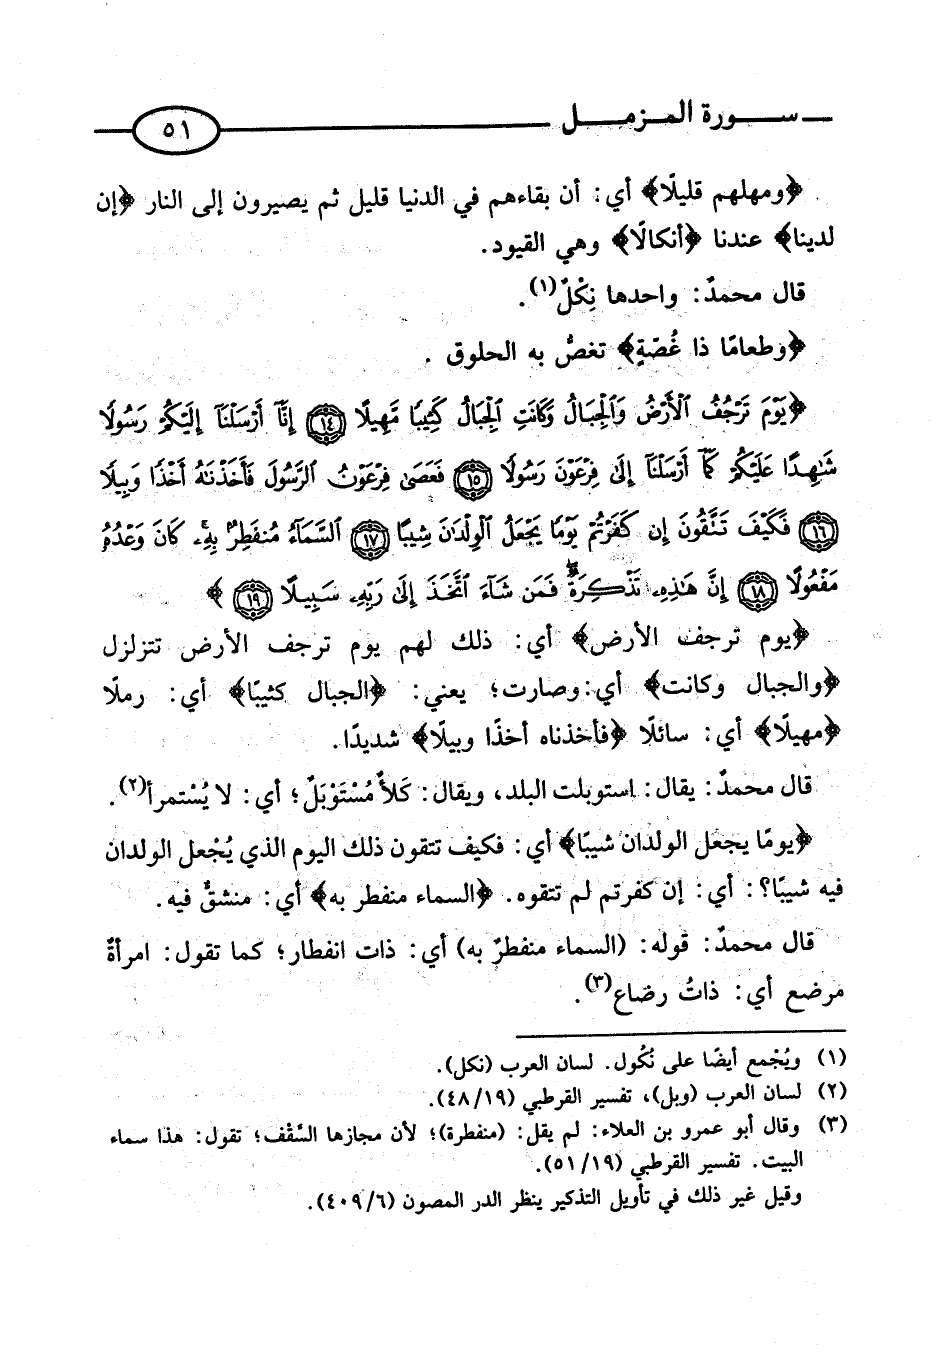 سورة المزمل
٥١
﴿ومهلهم قليلًا﴾ أي: أن بقاءهم في الدنيا قليل ثم يصيرون إلى النار ﴿إن
لدينا﴾ عندنا ﴿أنكالًا﴾ وهي القيود.
قال محمدٌ: واحدها نِكْلٌ(١).
﴿وطعامًا ذا غُصّةٍ﴾ تغصُّ به الحلوق .
﴿يَوْمَ تَرْجُفُ الْأَرْضُ وَالْجِبَالُ وَكَانَتِ الْجِبَالُ كَثِيبًا مَّهِيلًا ١٤ إِنَّا أَرْسَلْنَا إِلَيْكُمْ رَسُولًا
شَاهِدًا عَلَيْكُمْ كَمَا أَرْسَلْنَا إِلَى فِرْعَوْنَ رَسُولًا ١٥ فَعَصَى فِرْعَوْنُ الرَّسُولَ فَأَخَذْنَاهُ أَخْذًا وَبِيلًا
١٦ فَكَيْفَ تَتَّقُونَ إِن كَفَرْتُمْ يَوْمًا يَجْعَلُ الْوِلْدَانَ شِيبًا ١٧ السَّمَاءُ مُنفَطِرٌ بِهِ كَانَ وَعْدُهُ
مَفْعُولًا ١٨ إِنَّ هَذِهِ تَذْكِرَةٌ فَمَن شَاءَ اتَّخَذَ إِلَى رَبِّهِ سَبِيلًا ١٩ ﴾
﴿يوم ترجف الأرض﴾ أي: ذلك لهم يوم ترجف الأرض تتزلزل
﴿والجبال وكانت﴾ أي:وصارت؛ يعني: ﴿الجبال كثيبًا﴾ أي: رملًا
﴿مهيلًا﴾ أي: سائلًا ﴿فأخذناه أخذًا وبيلًا﴾ شديدًا.
قال محمدٌ: يقال: استوبلت البلد، ويقال: كَلأٌ مُسْتَوْبَلٌ؛ أي: لا يُسْتمرأ(٢).
﴿يومًا يجعل الولدان شيبًا﴾ أي: فكيف تتقون ذلك اليوم الذي يُجْعل الولدان
فيه شيبًا؟: أي: إن كفرتم لم تتقوه. ﴿السماء منفطر به﴾ أي: منشقٌّ فيه.
قال محمدٌ: قوله: (السماء منفطرٌ به) أي: ذات انفطار؛ كما تقول: امرأةٌ
مرضع أي: ذاتُ رضاع(٣).
(١) ويُجْمع أيضًا على نُكُول. لسان العرب (نكل).
(٢) لسان العرب (وبل)، تفسير القرطبي (٤٨/١٩).
(٣) وقال أبو عمرو بن العلاء: لم يقل: (منفطرة)؛ لأن مجازها السَّقْف؛ تقول: هذا سماء
البيت. تفسير القرطبي (٥١/١٩).
وقيل غير ذلك في تأويل التذكير ينظر الدر المصون (٤٠٩/٦).